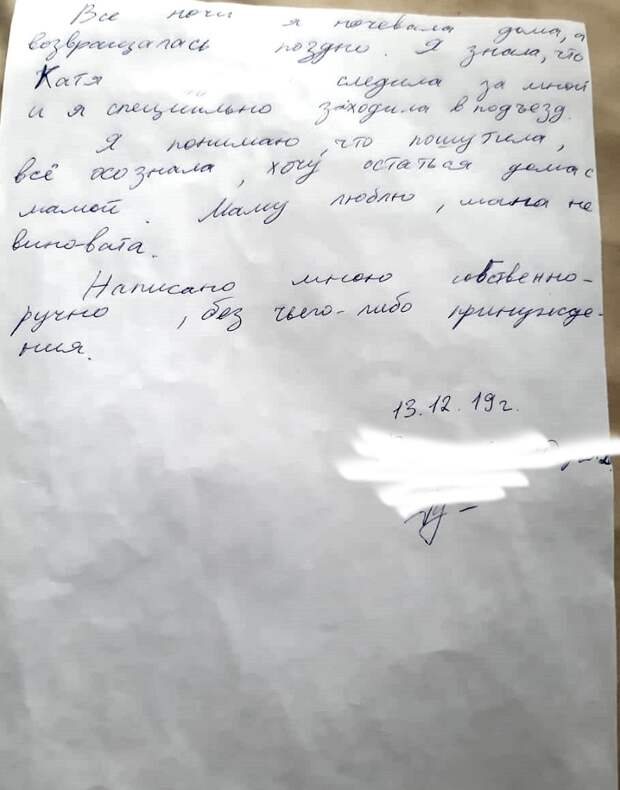 Все ночи я ночевала дома, а
возвращалась поздно. Я знала, что
Катя следила за мной
и я специльно заходила в подъезд.
Я понимаю, что пошутила,
всё осознала, хочу остаться дома с
мамой. Маму люблю, мама не
виновата.
Написано мною собственно-
ручно, без чьего-либо принужде-
ния.
13.12.19г.